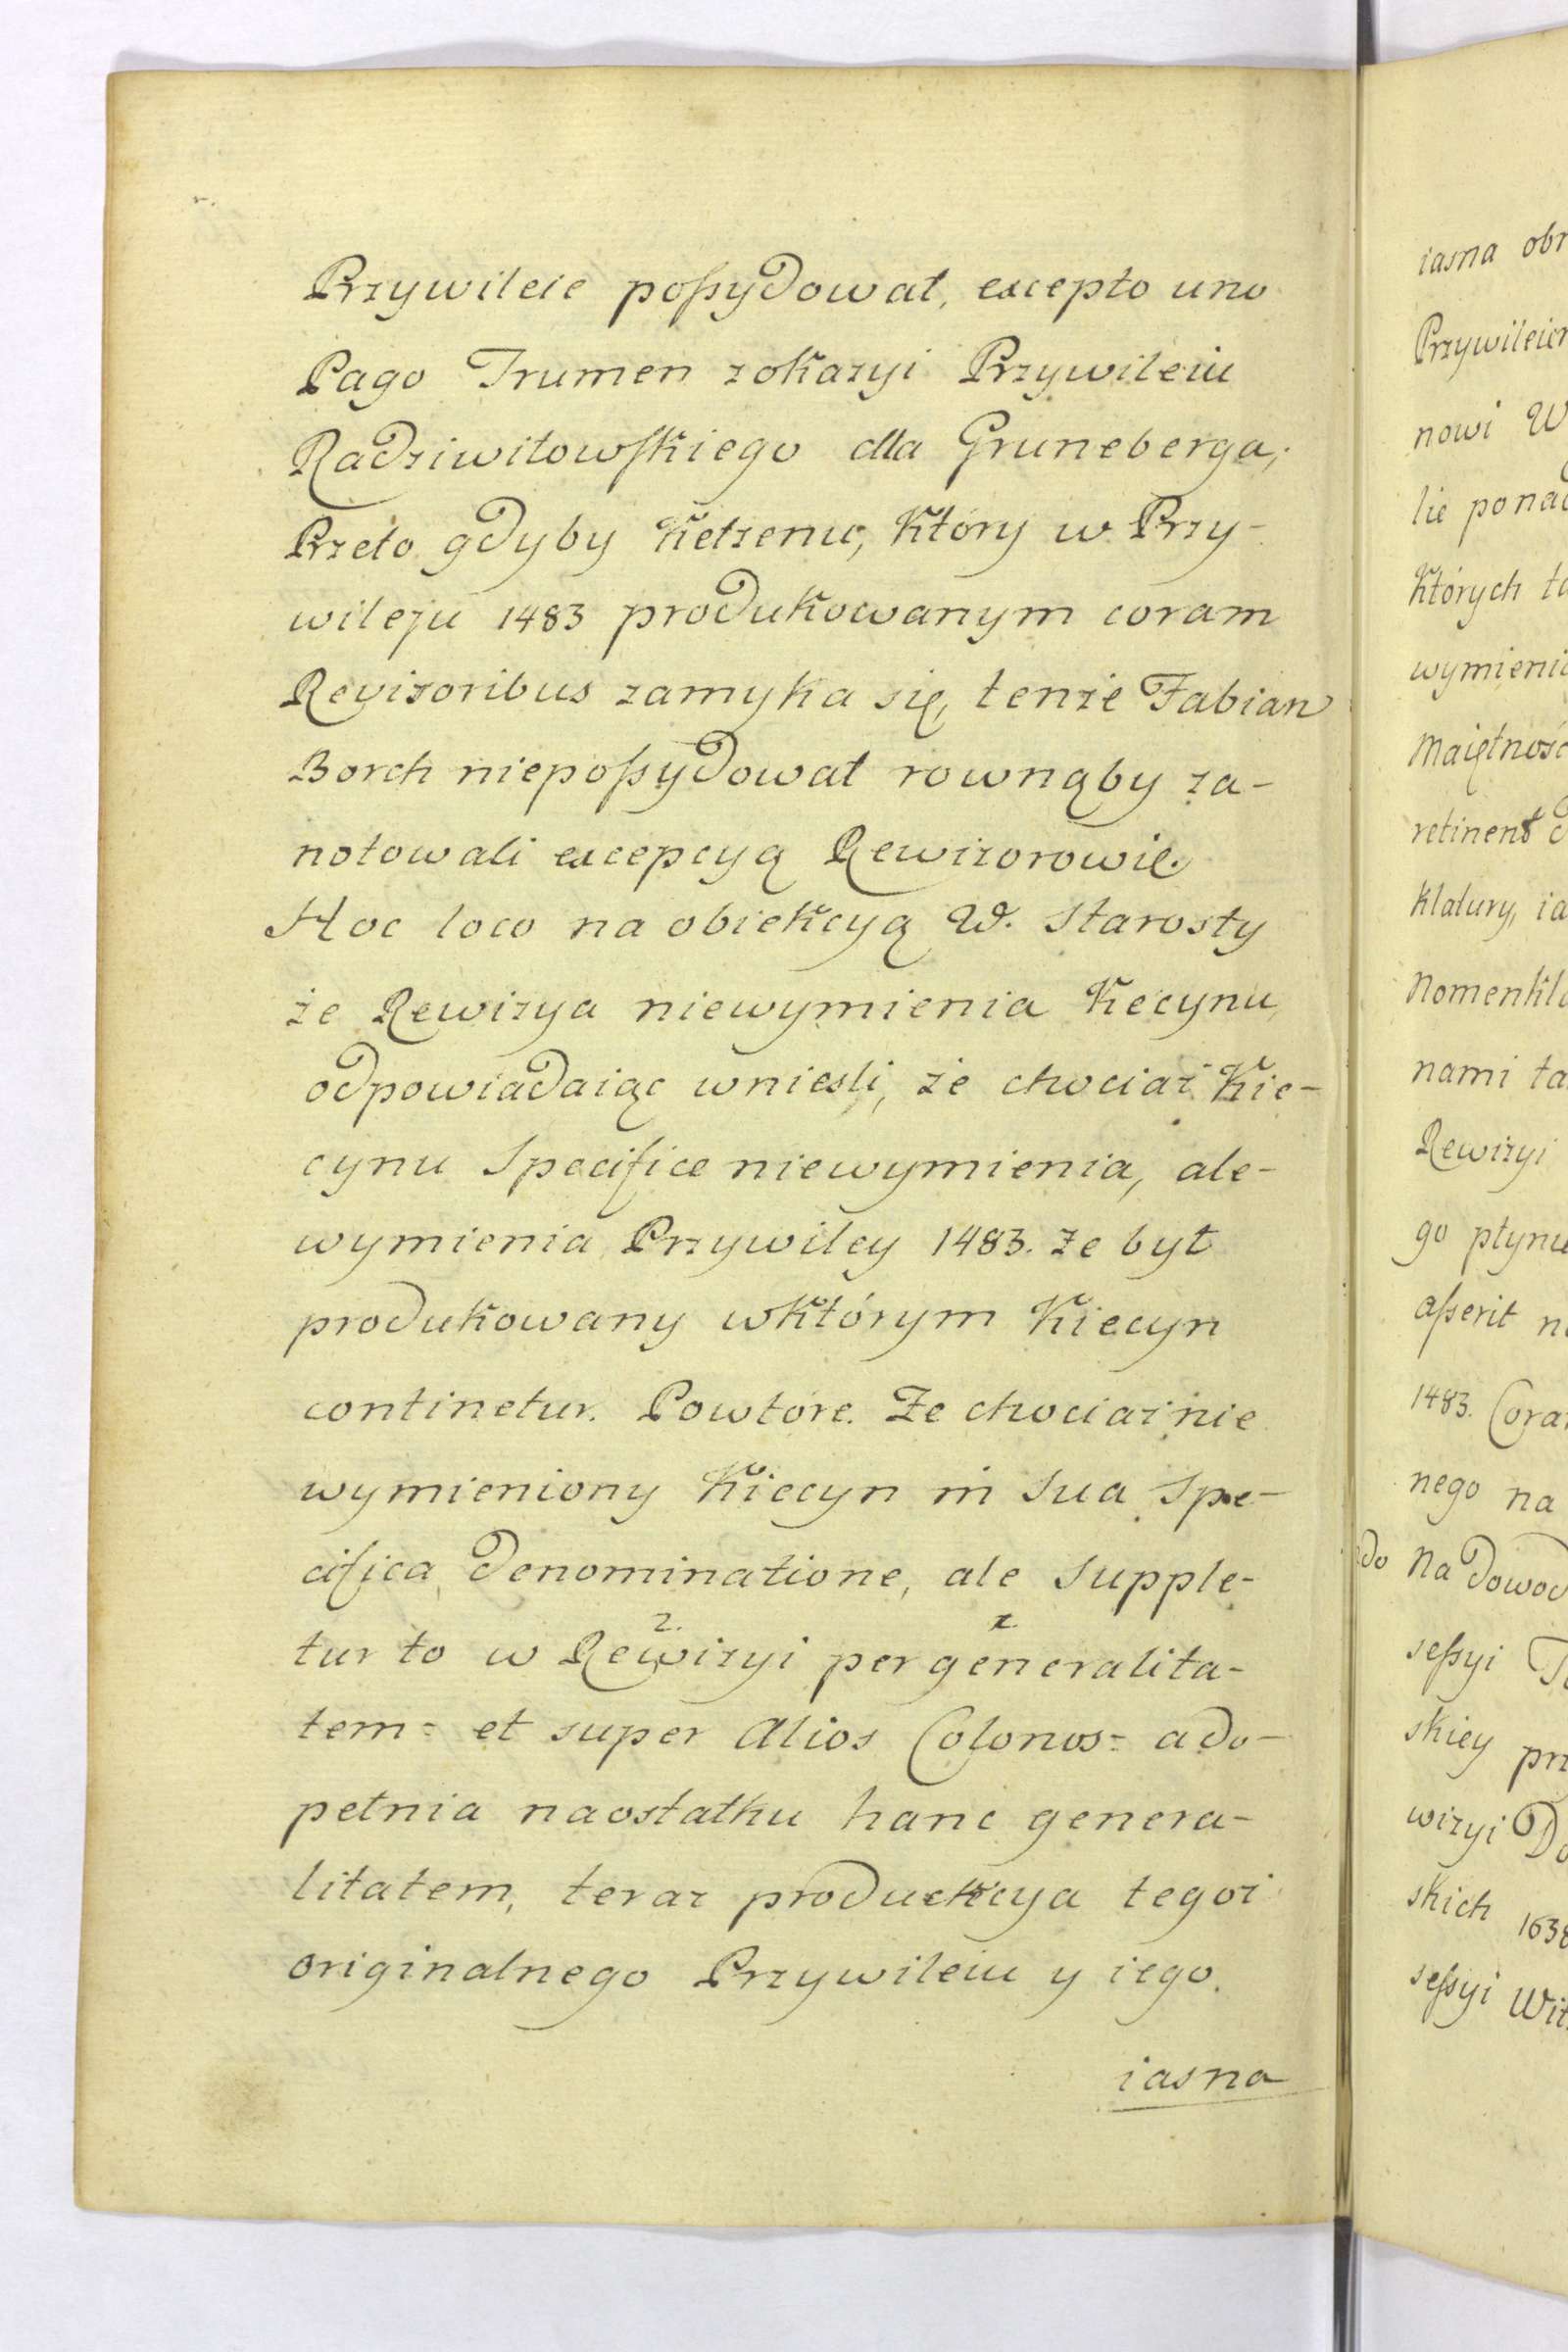 Przywileie possydował, excepto uno
Pago Trumen zokazyi Przywileiu
Radziwiłowskiego dla Gruneberga,
Przeto gdyby Ketzenu, który w Przy-
wileju 1483 produkowanym coram
Revizoribus zamyka się, tenże Fabian
Borch niepossydował rownąby za-
notowali excepcyą Rewizorowie.
Hoc loco na obiekcyą W. Starosty
że Rewizya niewymienia Kecynu
odpowiadaiąc wniesli, że chociaż Kie-
cynu Specifice niewymienia, ale-
wymienia Przywiley 1483. że był
produkowany wktórym Kiecyn
continetur. Powtóre. Że chociaż nie
wymieniony Kiecyn in Sua Spe-
cifica denominatione, ale Supple-
2. 1.
tur to w Rewizyi per generalita-
tem= et super Alios Colonos= a do-
pełnia naostatku hanc genera-
litatem, teraz produckcya tegoż
originalnego Przywileiu y iego.
iasna
iasna
nowi W
lie
Których
retinent
klatury,
nami
Rewizyi
go
asserit
1483.
nego na
Na
sessyi
skiey
wizyi
skich
sessyi